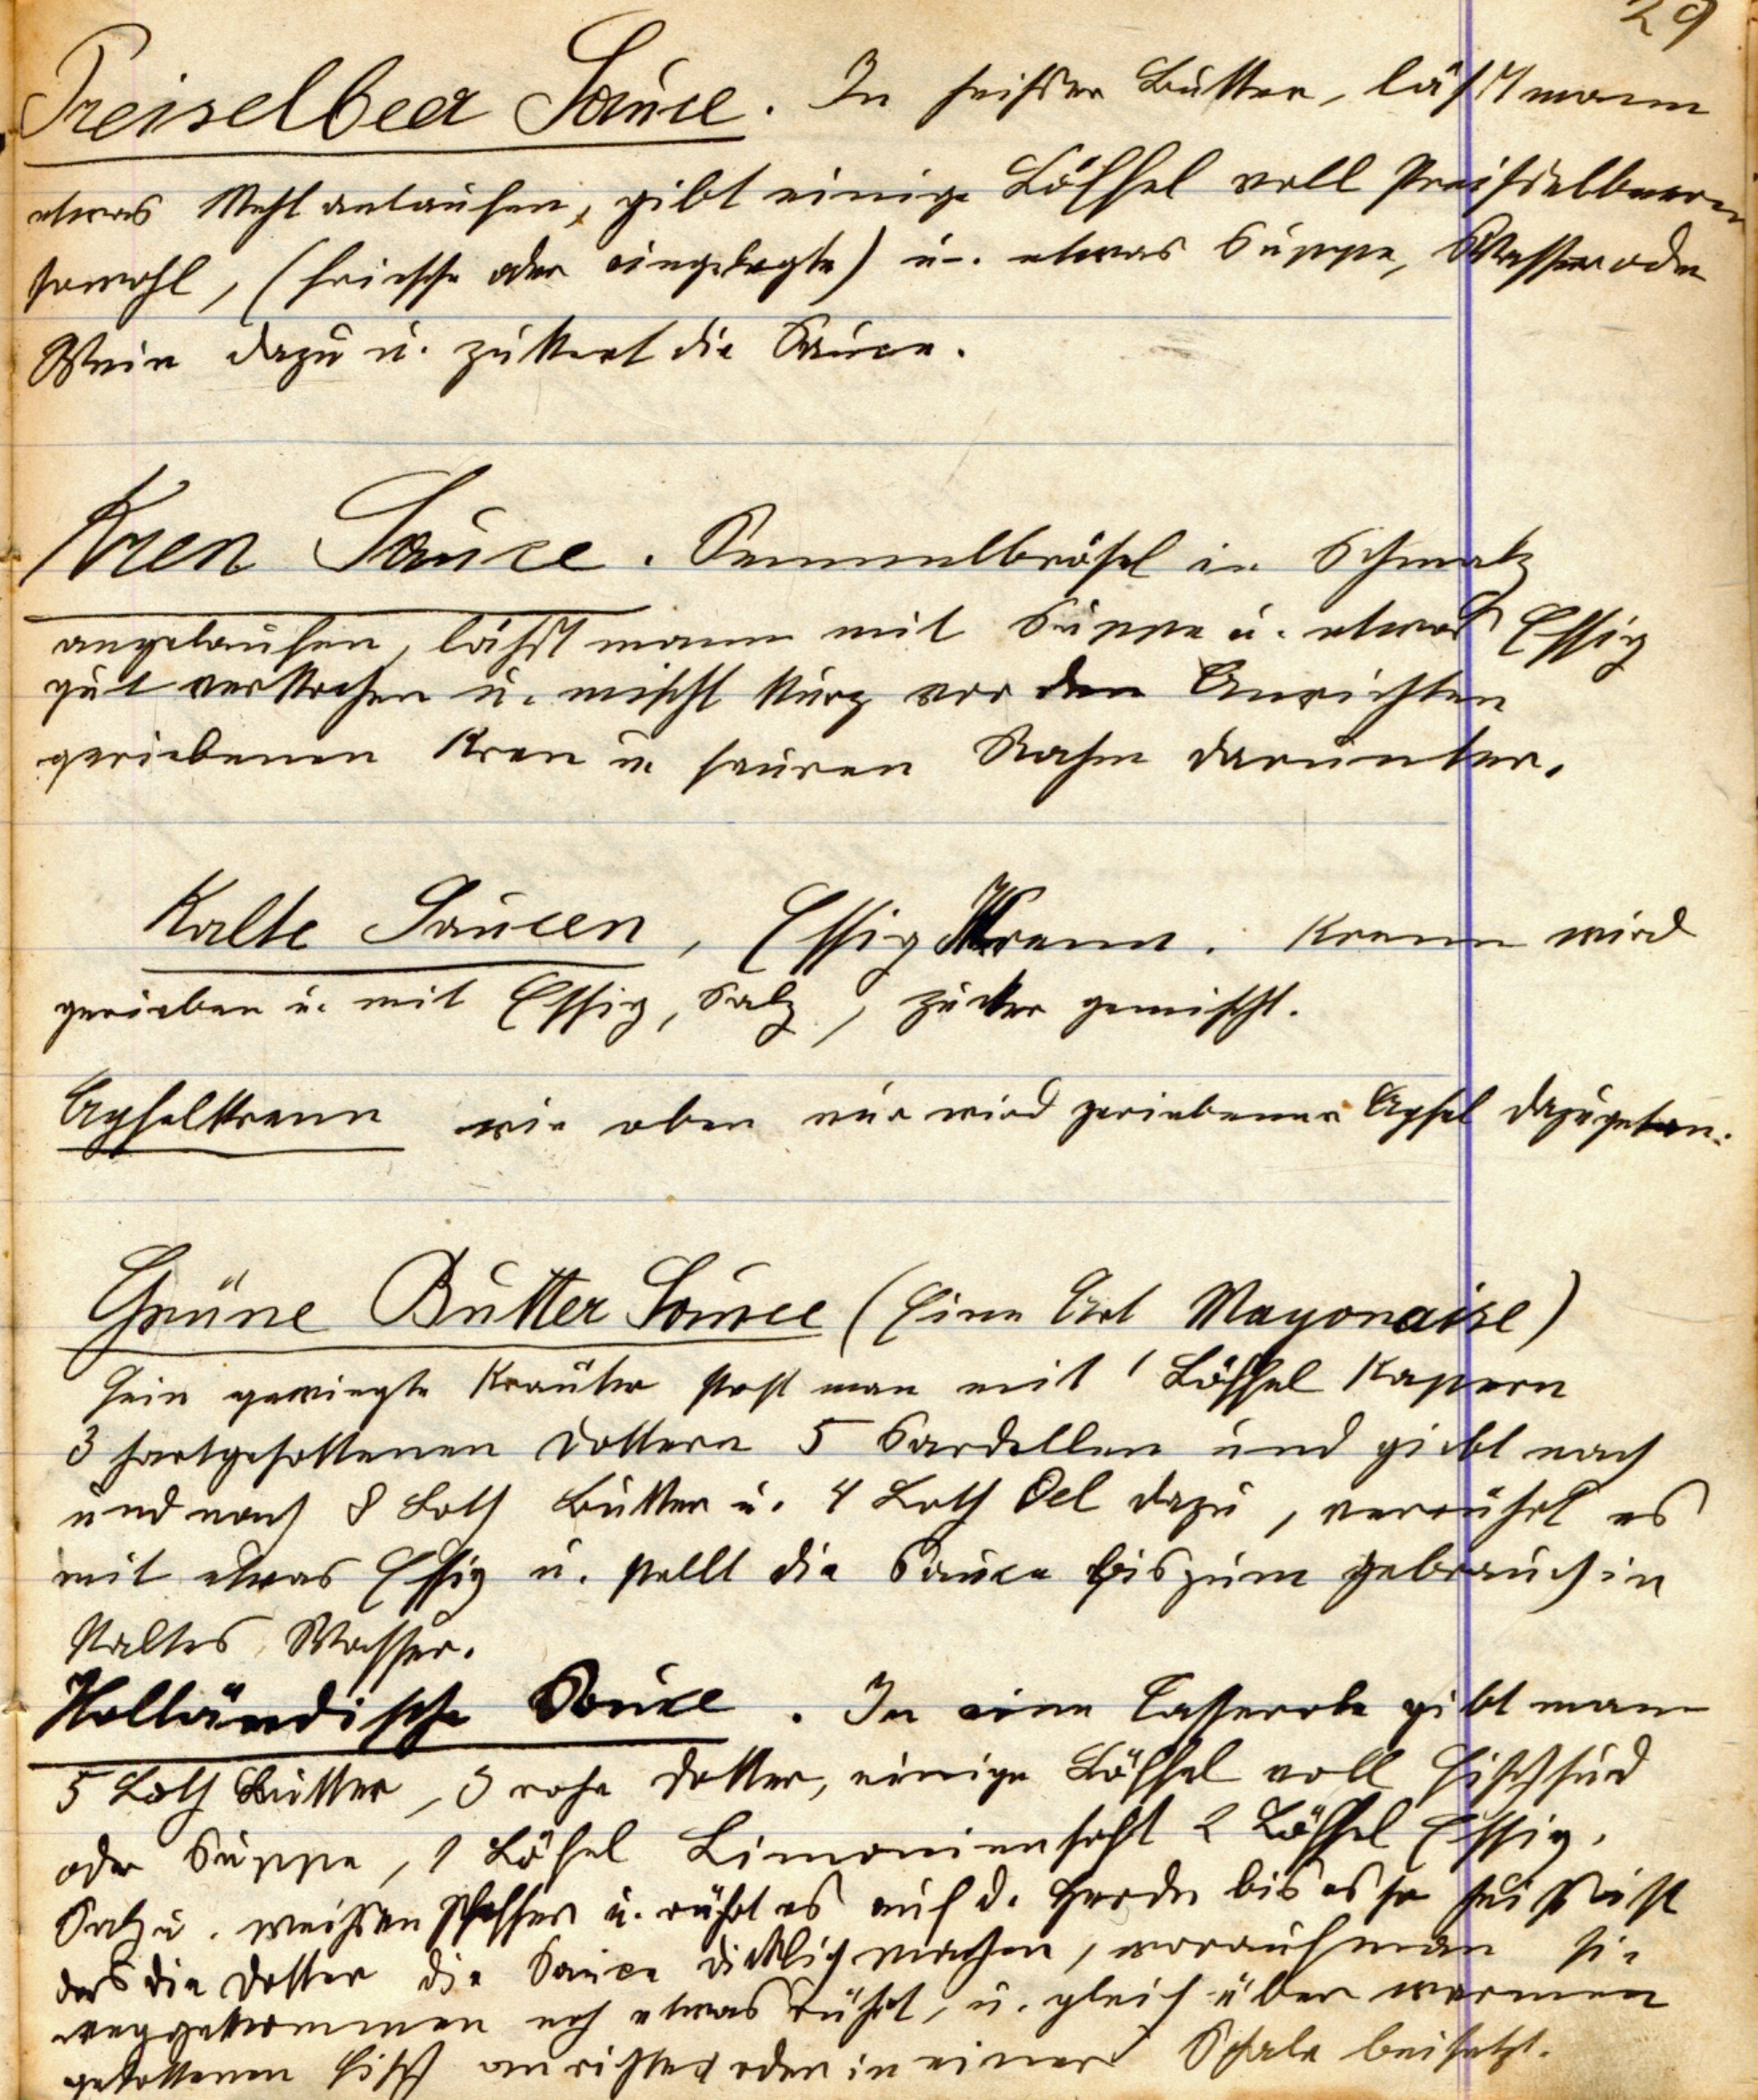 29
Preiselbeer Sauce. In heißer Butter, läßt mann
etwas Mehl anlaufen, gibt einige Löffel voll Preißelbeeren
sowohl, (frische oder eingelegte) u. etwas Suppe, Wasser oder
Wein dazu u. zukert die Sauce.
Kren Sauce. Semmelbrösel in Schmalz
angelaufen, läßt mann mit Suppe u. etwas Essig
gut verkochen u. mischt kurz vor den Anrichten
geriebenen Kren u. sauren Rahm darunter.
Kalte Saucen, Essig Krenn. Krenn wird
gerieben u. mit Essig, Salz, zucker gemischt.
Apfelkrenn wie oben nur wird geriebener Apfel dazugetan.
Grüne Butter Sauce (Eine Art Mayonaise)
Fein gewiegte Kräuter stost man mit 1 Löffel Kapern
3 hartgesottenen Dottern 5 Sardellen und giebt nach
und nach 8 Loth Butter u. 4 Loth Oel dazu, verrührt es
mit etwas Essig u. stellt die Sauce bis zum gebrauch in
kaltes Wasser.
Holländische Sauce. In eine Casserole gibt mann
5 Loth Butter, 3 rohe Dotter, einige Löffel voll Fischsud
oder Suppe, 1 Löfel Limoniensaft 2 Löffel Essig,
Salz u. weißen Pfeffer u. rührt es auf d. Herde bis es so heiß ist
das die Dotter die Sauce dicklich machen, worauf man sie
weggekommen noch etwas rührt, u. gleich über warmen
gesottenen Fisch anrichtet oder in einer Schale beisetzt.